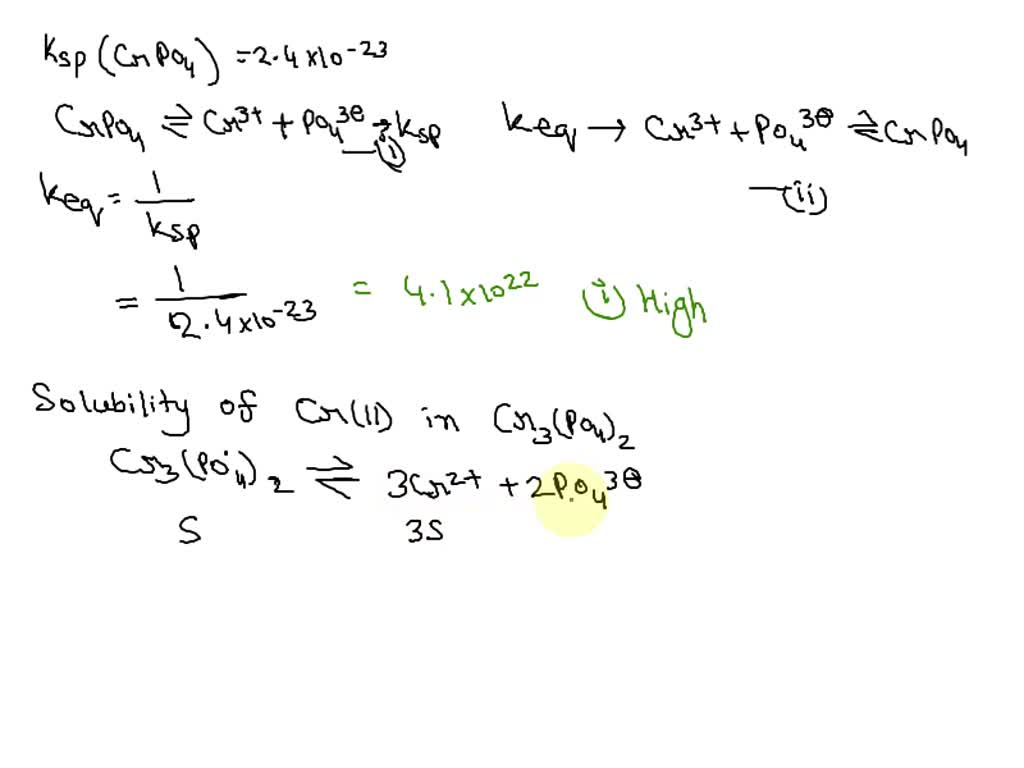 Ksp (CrPO₄) = 2.4 × 10⁻²³
CrPO₄ ⇌ Cr³⁺ + PO₄³⊖ → Ksp —(i)
Keq → Cr³⁺ + PO₄³⊖ ⇌ CrPO₄ —(ii)
Keq = 1/Ksp
= 1/2.4×10⁻²³ = 4.1×10²² (i) High
Solubility of Cr(II) in Cr₃(PO₄)₂
Cr₃(PO₄)₂ ⇌ 3Cr²⁺ + 2PO₄³⊖
S 3S